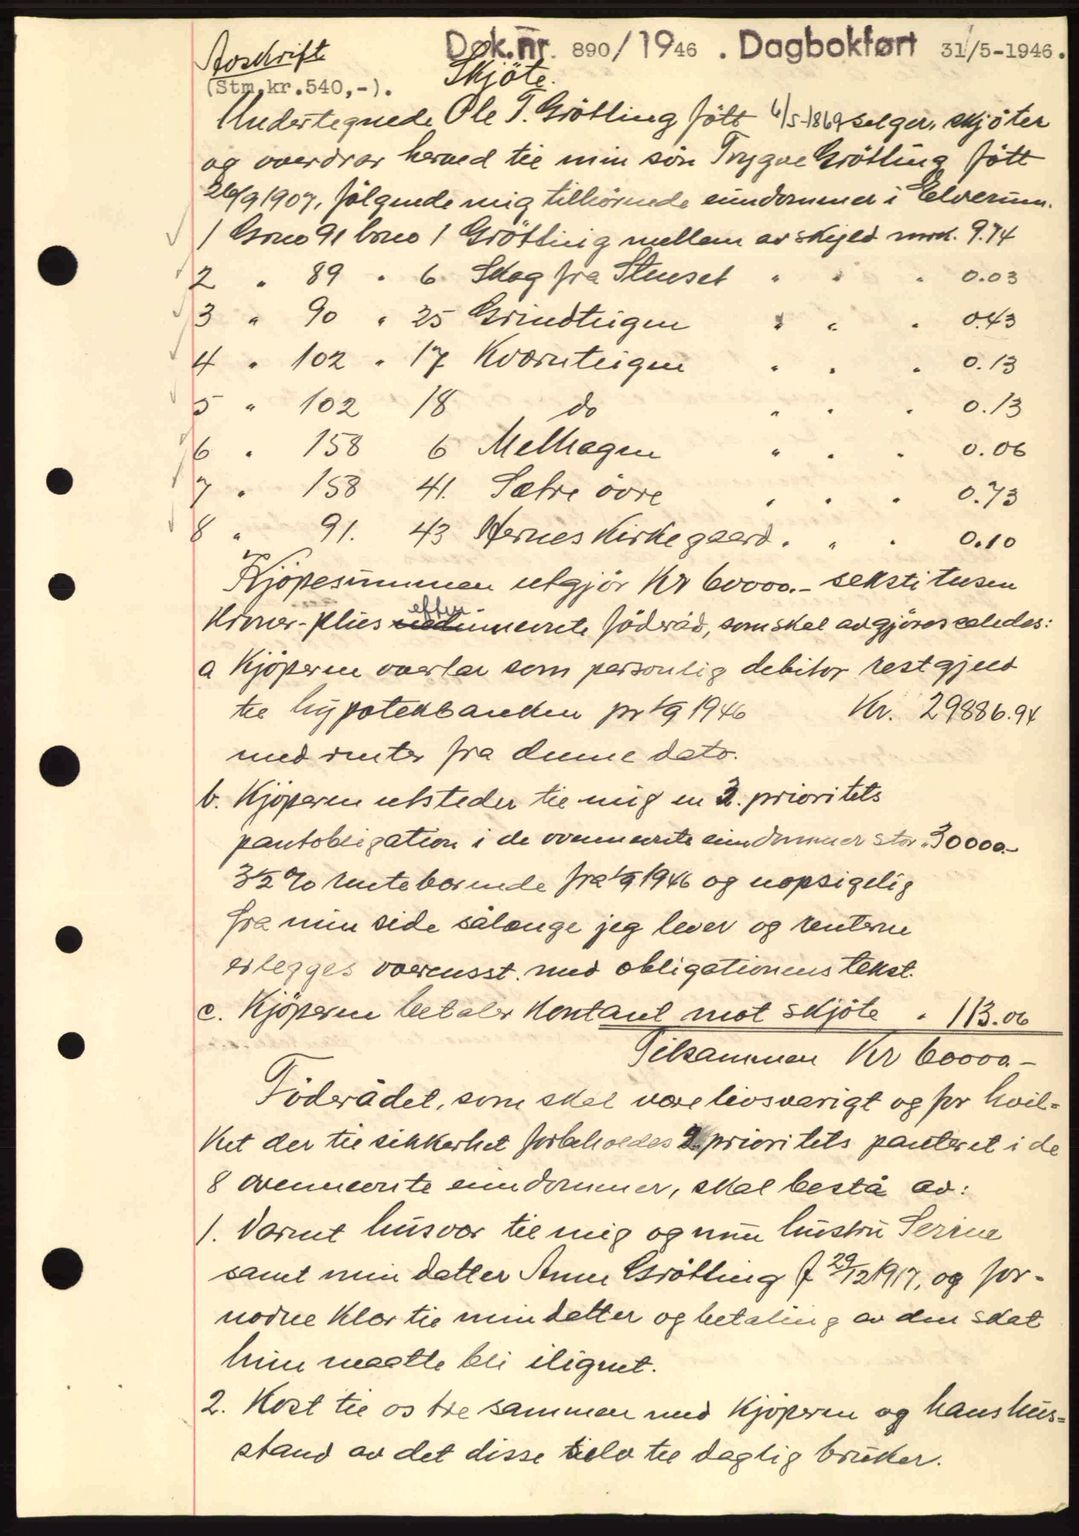 Avskrift Dok.nr. 890/1946. Dagbokført 31/5-1946.
(Stm.kr.540,-). Skjöte.
Undertegnede Ole T. Gröttling fött 6/5-1869 selger, skjöter
og overdrar herved til min sön Trygve Gröttling fött
26/9 1907, fölgende mig tilhörende eiendommer i Elverum.
1 Gno 91 bno 1 Gröttling mellem av skyld mrk. 9.74
2 " 89 " 6 Skog fra Stenset " " " 0.03
3 " 90 " 25 Grindteigen " " " 0.43
4 " 102 " 17 Kværnteigen " " " 0.13
5 " 102 18 do " " " 0.13
6 " 158 6 Melhagen " " " 0.06
7 " 158 41. Sætre övre " " " 0.73
8 " 91. 43 Hernes Kirkegaard " " " 0.10
Kjöpesummen utgjör Kr 60000.- sekstitusen
Kroner- plus efternevnte föderåd, som skal avgjöres således:
a Kjöperen overtar som personlig debitor restgjeld
til hypotekbanken pr 1/9 1946 Kr. 29886.94
med renter fra denne dato.
b. Kjöperen utsteder til mig en 3. prioritets
pantobligation i de ovennevnte eiendommer stor " 30000.-
3½ % rentebærende fra 1/9 1946 og uopsigelig
fra min side sålænge jeg lever og renterne
erlegges overensst. med obligationens tekst.
c. Kjöperen betaler kontant mot skjöte " 113.06
Tilsammen Kr 60000.-
Föderådet, som skal være livsvarigt og for hvil-
ket der til sikkerhet forbeholdes 2 prioritets panteret i de
8 ovennevnte eiendommer, skal bestå av:
1. Varmt husvær til mig og min hustru Serine
samt min datter Anne Gröttling f 29/12 1917, og for-
nødne klær til min datter og betaling av den skat
hun maatte bli ilignet.
2. Kost til os tre sammen med Kjöperen og hans hus-
stand av det disse selv til daglig bruker.